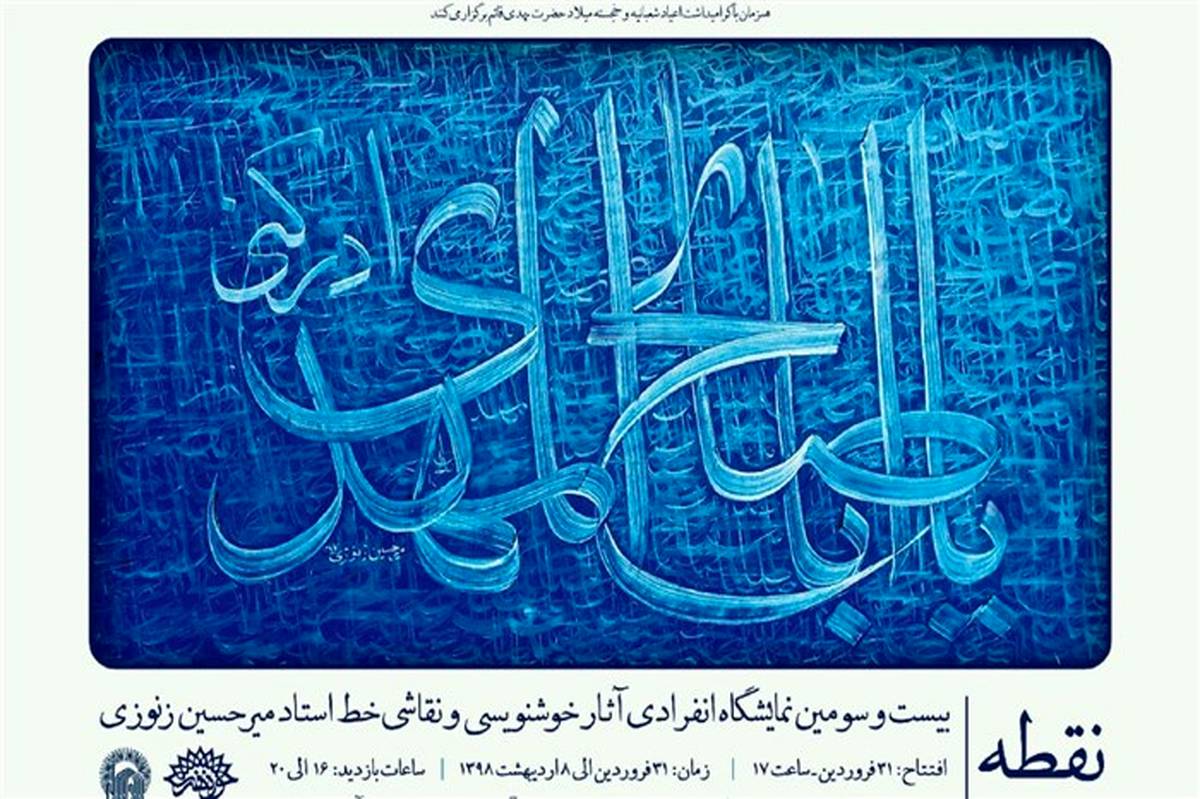 همزمان با گرامیداشت اعیاد شعبانیه و خجسته میلاد حضرت مهدی قائم برگزار می‌کنند
یا اباصالح المهدی ادرکنی
میرحسین زنوزی
نقطه
بیست و سومین نمایشگاه انفرادی آثار خوشنویسی و نقاشی خط استاد میرحسین زنوزی
افتتاح: ۳۱ فروردین-ساعت ۱۷ | زمان: ۳۱ فروردین الی ۸ اردیبهشت ۱۳۹۸ | ساعات بازدید: ۱۶ الی ۲۰